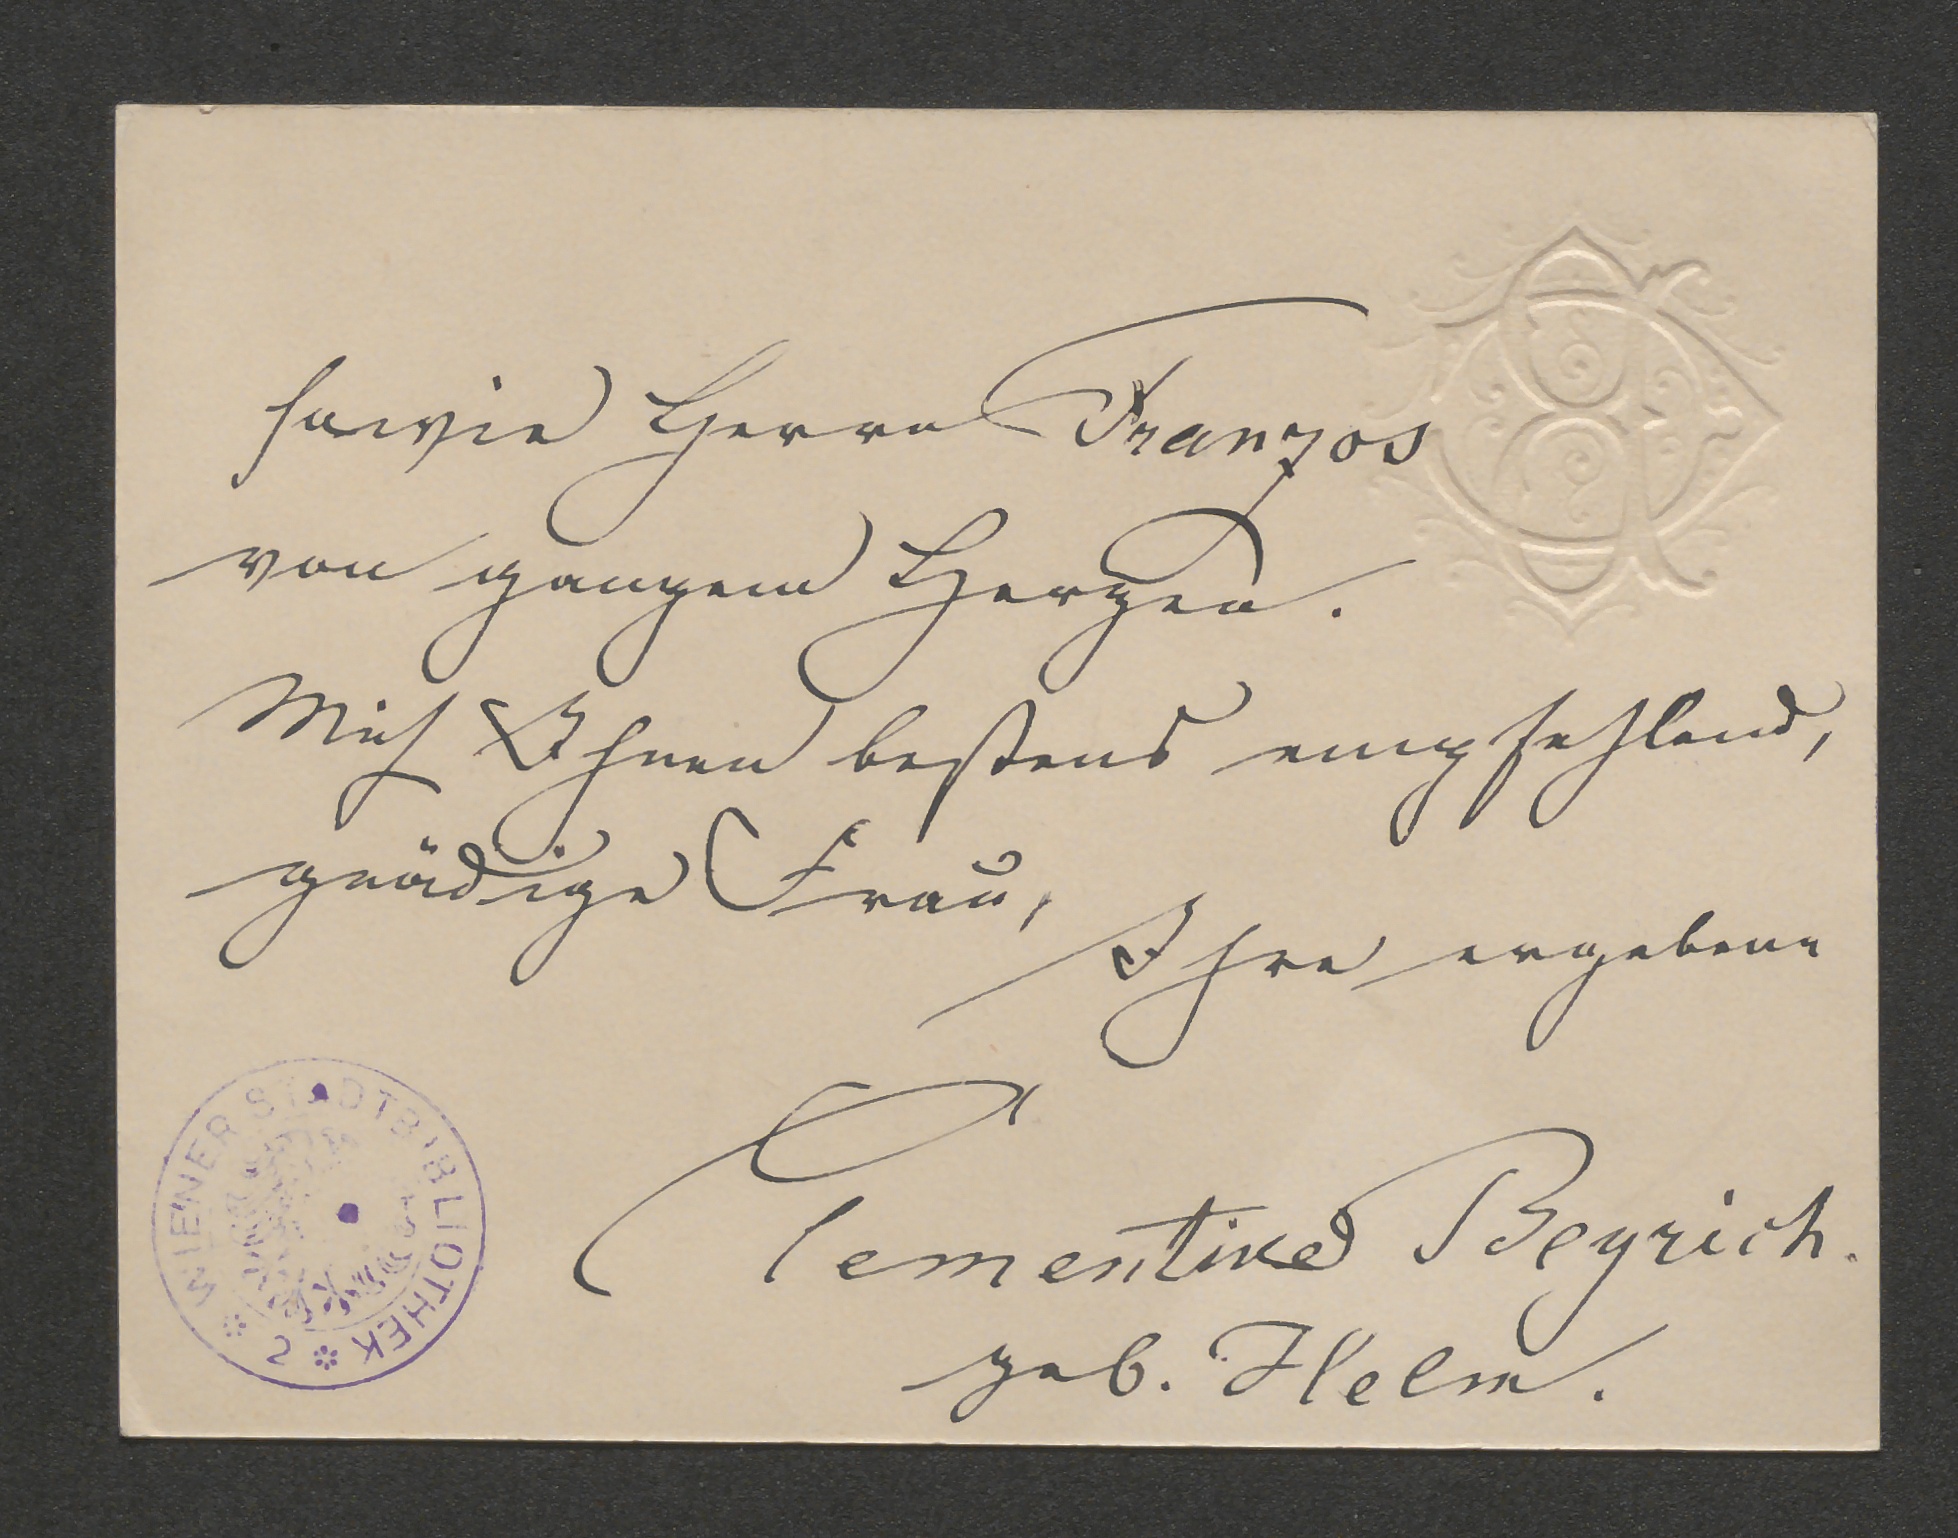 sowie Herrn Franzos
von ganzem Herzen.
Mich Ihnen bestens empfehlend,
gnädige Frau,
Ihre ergebene
Clementine Beyrich.
geb. Helm.
WIENER STADTBIBLIOTHEK